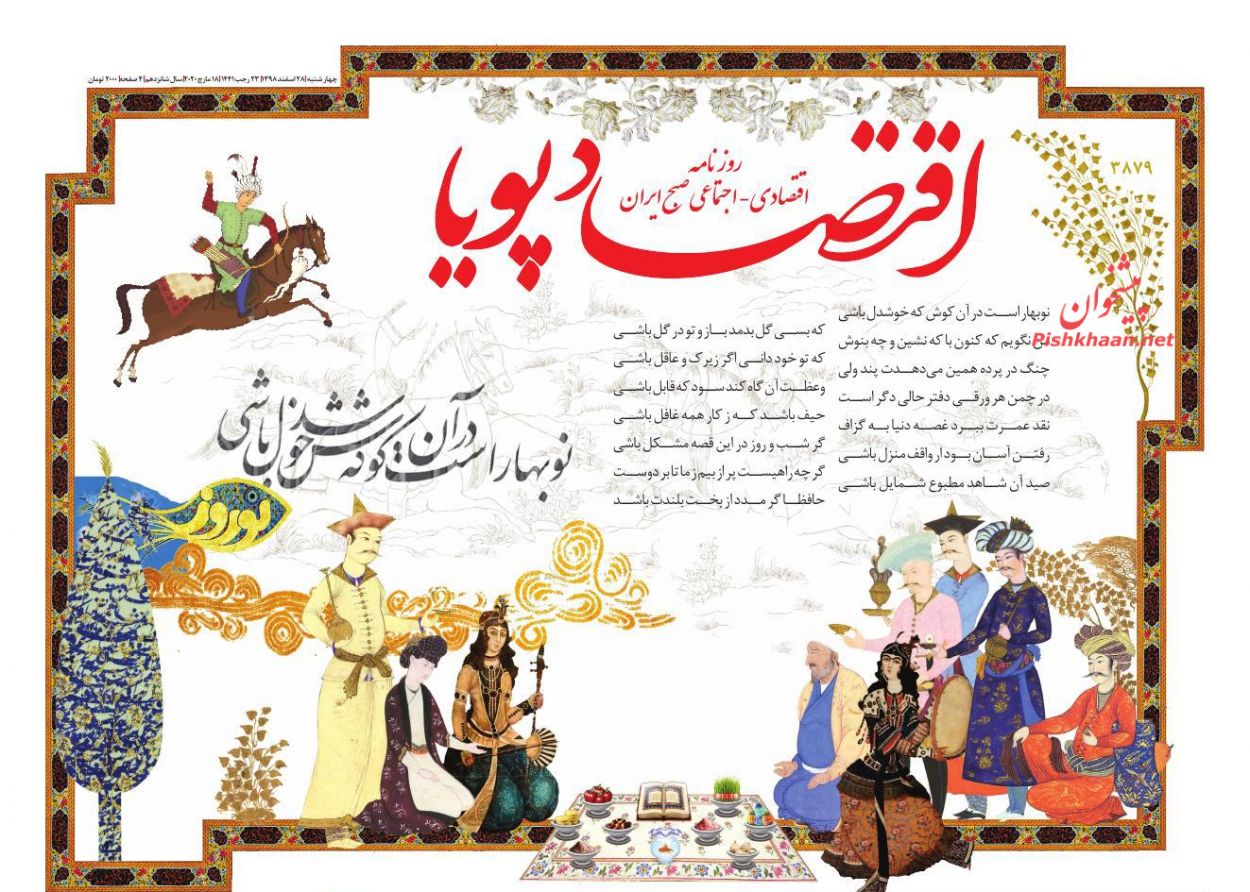 چهارشنبه|۲۸ اسفند ۱۳۹۸|۲۳ رجب ۱۴۴۱|۱۸ مارچ ۲۰۲۰|سال شانزدهم|۴ صفحه|۲۰۰۰ تومان
اقتصاد پویا
روزنامه
اقتصادی-اجتماعی صبح ایران
۳۸۷۹
پیشخوان
Pishkhaan.net
نوبهار است در آن کوش که خوشدل باشی
که بسی گل بدمد باز و تو در گل باشی
نگویم که کنون با که نشین و چه بنوش
که تو خود دانی اگر زیرک و عاقل باشی
چنگ در پرده همین می‌دهدت پند ولی
وعظت آن گاه کند سود که قابل باشی
در چمن هر ورقی دفتر حالی دگر است
حیف باشد که ز کار همه غافل باشی
نقد عمرت ببرد غصه دنیا به گزاف
گر شب و روز در این قصه مشکل باشی
گر چه راهیست پر از بیم ز ما تا بر دوست
رفتن آسان بود ار واقف منزل باشی
حافظا گر مدد از بخت بلندت باشد
صید آن شاهد مطبوع شمایل باشی
نوبهار است در آن کوش که خوشدل باشی
نوروز